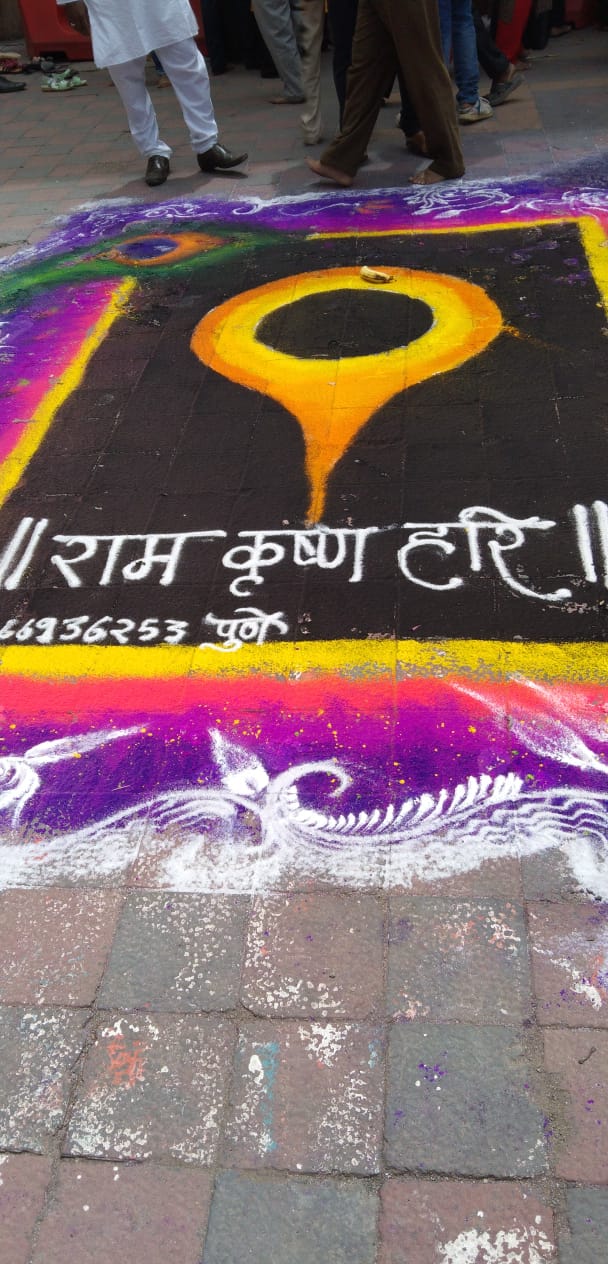 ॥ राम कृष्ण हरि ॥
66936253 पुणे